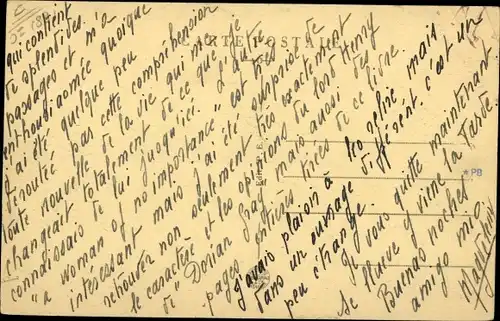 CARTE POSTALE
qui contient
de splendides
passages et m'a
enthousiasmée quoique
j'ai été quelque peu
déroutée par cette compréhension
toute nouvelle de la vie qui me
changeait totalement de ce que je
connaissais de lui jusqu'ici. L'autre
"a woman of no importance" est très
intéressant mais j'ai été surprise de
retrouver non seulement très exactement
le caractère et les opinions du lord Henry
de "Dorian Gray" mais aussi des
pages entières tirées de ce livre.
J'avais plaisir à les relire mais
dans un ouvrage différent c'est un
peu étrange.
Je vous quitte maintenant
se llueve y viene la tarde
Buenas noches
amigo mio
PB